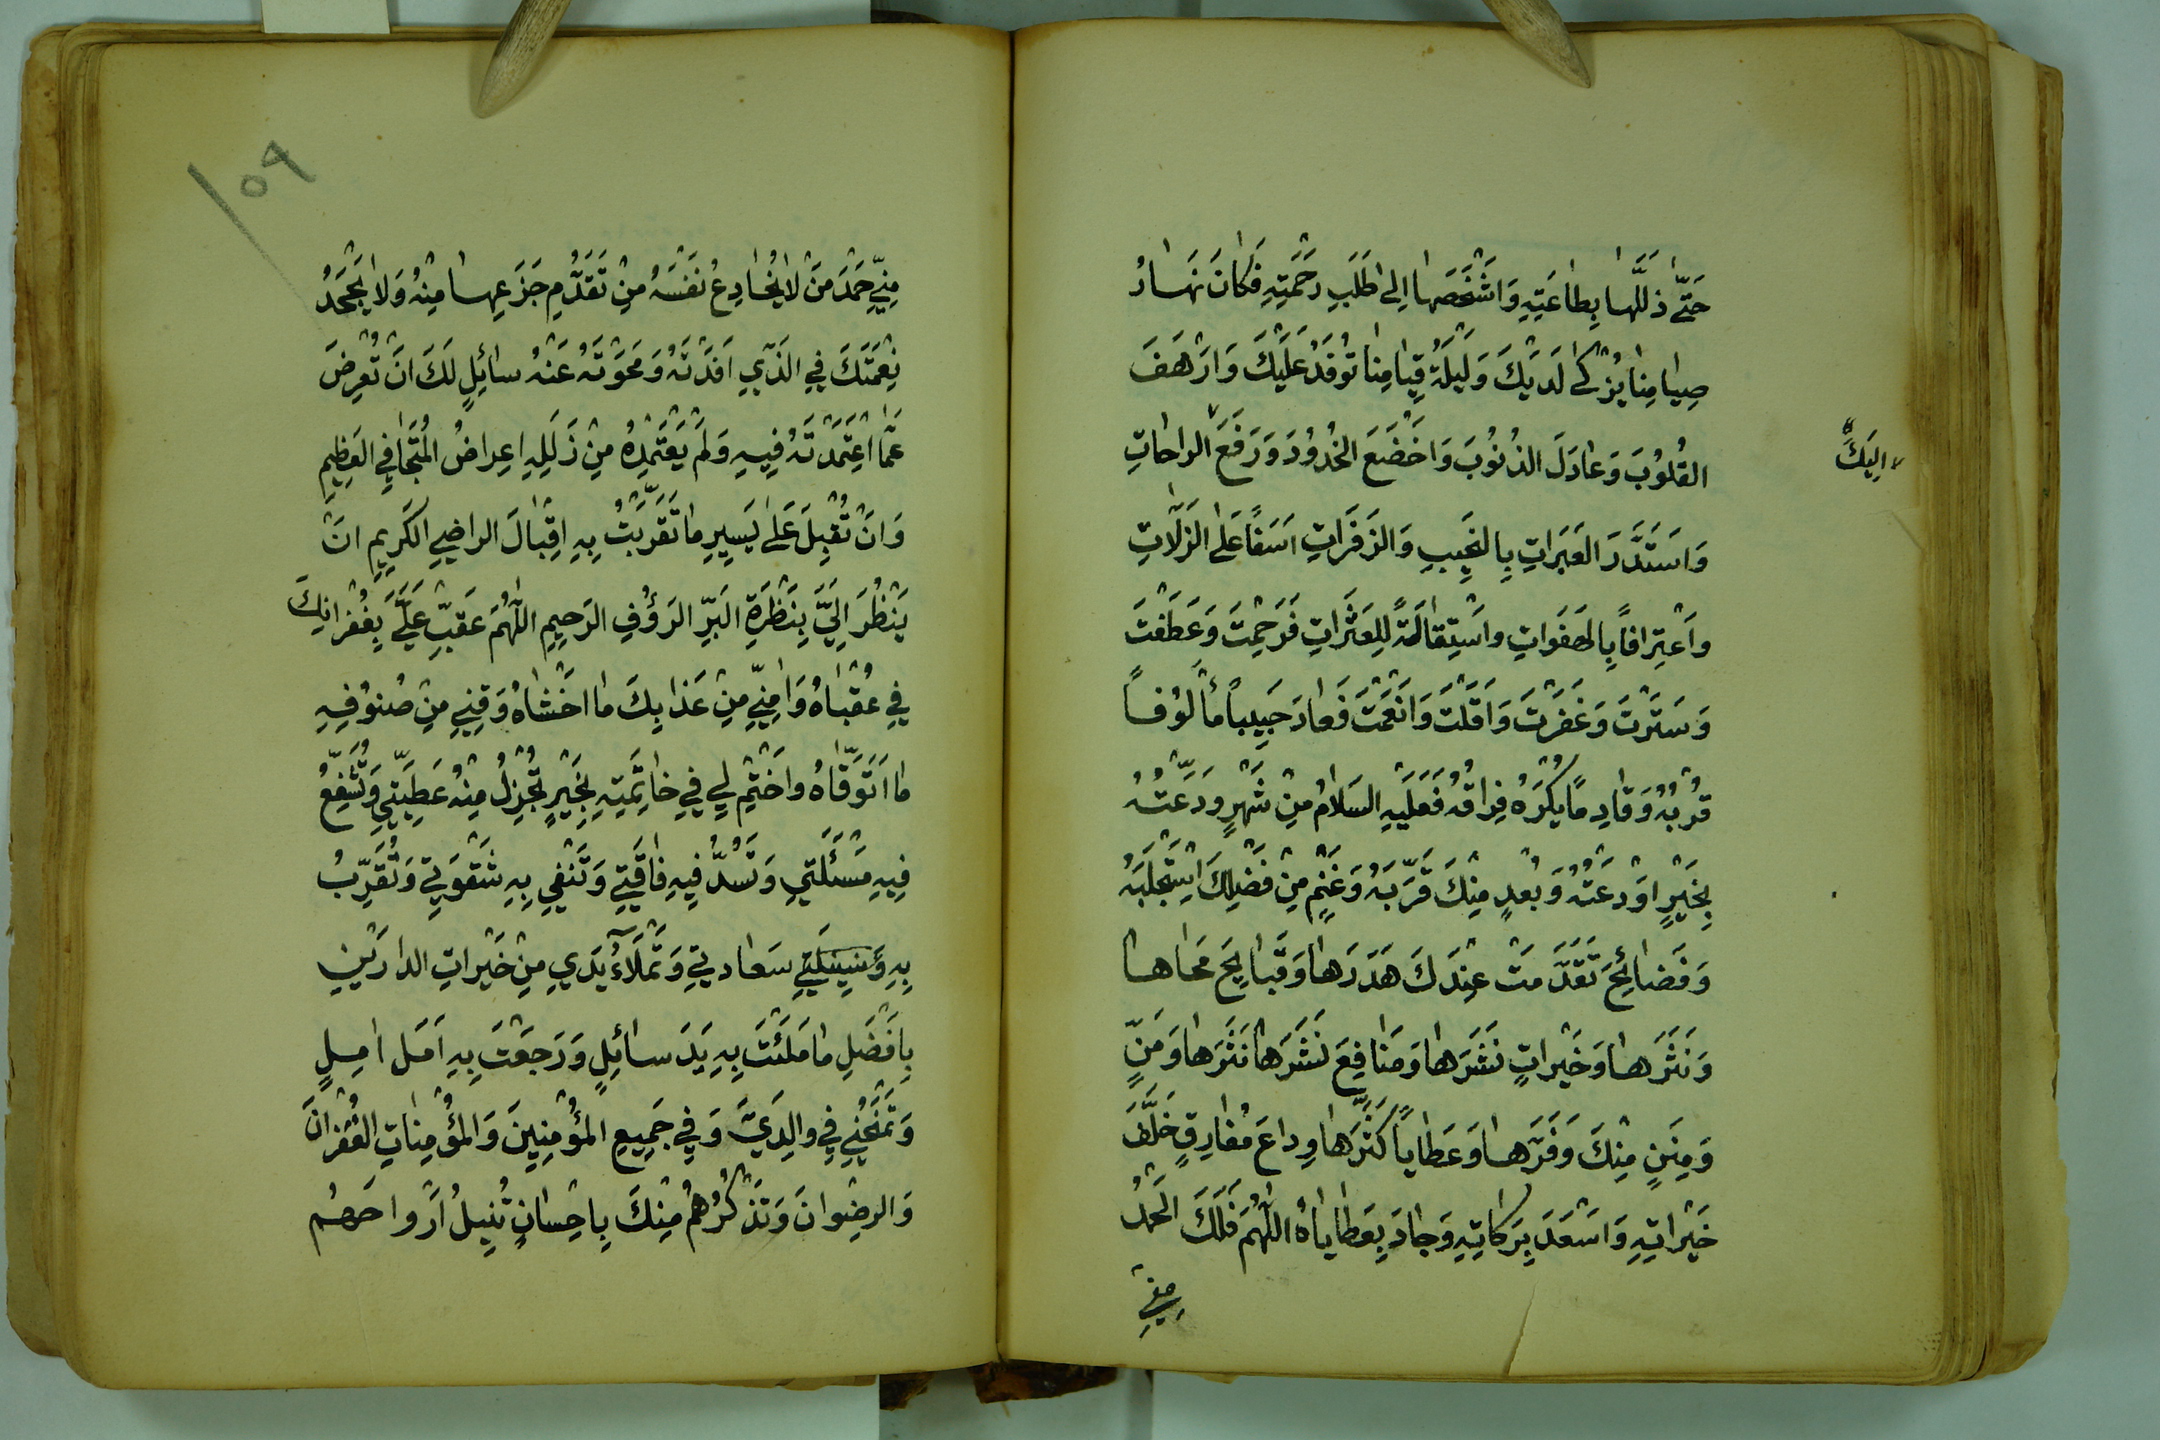 حَتّٰى ذَلَّلَها بِطاعَتِهِ وَاشْخَصَها اِلىٰ طَلَبِ رَحْمَتِهِ فَكانَ نَهارُ
صِيامِنا يُزْكىٰ لَدَيْكَ وَلَيْلَةُ قِيامِنا تُوفَدُ عَلَيْكَ وَارْهَفَ
القُلُوبَ وَعادَلَ الذُنُوبَ وَاخْضَعَ الخُدُودَ وَرَفَعَ الراحاتِ
اِلَيْكَ
وَاسْتَدَرَّ العَبَراتِ بِالنَحِيبِ وَالزَفَراتِ اَسَفًا عَلىٰ الزَلّاتِ
واعْتِرافاً بِالهَفَواتِ واسْتِقالَةً لِلعَثَراتِ فَرَحِمْتَ وَعَطَفْتَ
وَسَتَرْتَ وَغَفَرْتَ وَاَقَلْتَ وَانْعَمْتَ فَعادَ حَبِيباً مأْلوُفاً
قُرْبُهُ وَقادِماً يُكْرَهُ فِراقُهُ فَعَلَيْهِ السَلامُ مِنْ شَهْرٍ وَدَّعْتُهُ
بِخَيْرٍ اوْدَعْتُهُ وَبُعْدٍ مِنْكَ قَرَّبَهُ وَغُنْمٍ مِنْ فَضْلِكَ اسْتَجْلَبَهُ
وَفَضائِحَ تَقَدَّمَتْ عِنْدَكَ هَدَرَها وَقَبايِحَ مَحاها
وَنَثَرَها وَخَيْراتٍ نَشَرَها وَمَنافِعَ نَشَرَها نَثَرَها وَمَنٍّ
وَمِنَنٍ مِنْكَ وَفَّرَها وَعَطايا كَثَّرَها وِداعَ مُفارِقٍ خَلَّفَ
خَيْراتِهِ وَاسْعَدَ بَرَكاتِهِ وَجادَ بِعَطاياهُ اللّٰهُمَ فَلَكَ الحَمْدُ
مِنّي
١٥٩
مِنّي حَمْدَ مَنْ لا يُخادِعُ نَفْسَهُ مِنْ تَقَدُّمِ جَزَعِها مِنْهُ وَلا يَجْحَدُ
نِعْمَتَكَ في الذَي اَفَدْتَهُ وَمَحَوْتَهُ عَنْهُ سائِلٍ لَكَ انْ تُعْرِضَ
عَمّا اعْتَمَدْتَهُ فِيهِ وَلَمْ يَعْتَمِدْهُ مِنْ زَلَلِهِ اِعراضَ المُتَجافي العَظِيمِ
وَانْ تُقْبِلَ عَلىٰ يَسِيرِ ما تَقَرَّبْتُ بِهِ اِقْبالَ الراضي الكَرِيمِ انْ
يَنْظُرَ اِلَيَّ بِنَظْرَةِ البَرِّ الرَؤُفِ الرَحِيمِ اللّٰهُمَ عَقِّبْ عَلَيَّ بِغُفْرانِكَ
في عُقْباهُ وَامِنّي مِنْ عَذابِكَ ما اخْشاهُ وَقِني مِنْ صُنوُفِهِ
ما اَتَوَقّاهُ واخْتِمْ لي في خاتِمَتِهِ بِخَيْرٍ تُجْزِلُ مِنْهُ عَطِيَّتي وَتُشَفِّعُ
فِيهِ مَسْئَلَتي وَتَسُدُّ فِيهِ فاقَتي وَتَنْفي بِهِ شَقْوَتي وَتُقَرِّبُ
بِهِ وَسِيلَتي سَعادَتي وَتَمْلَأُ يَدي مِنْ خَيْراتِ الدارَيْنِ
بِاَفْضَلِ ما مَلَئْتَ بِهِ يَدَ سائِلٍ وَرَجَعْتَ بِهِ اَمَلَ امِلٍ
وَتَمْنَحُني في والِدَيَّ وَفي جَمِيعِ المُؤْمِنِينَ وَالمُؤْمِناتِ الغُفْرانَ
وَالرِضْوانَ وَتَذْكُرُهُمْ مِنْكَ بِاِحْسانٍ تُنِيلُ اَرْواحَهُم